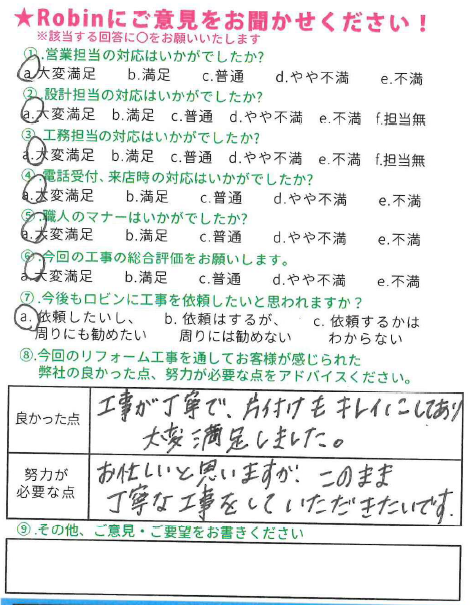 ★Robinにご意見をお聞かせください!
※該当する回答に〇をお願いいたします
①.営業担当の対応はいかがでしたか?
a.大変満足 b.満足 c.普通 d.やや不満 e.不満
②.設計担当の対応はいかがでしたか?
a.大変満足 b.満足 c.普通 d.やや不満 e.不満 f.担当無
③.工務担当の対応はいかがでしたか?
a.大変満足 b.満足 c.普通 d.やや不満 e.不満 f.担当無
④.電話受付、来店時の対応はいかがでしたか?
a.大変満足 b.満足 c.普通 d.やや不満 e.不満
⑤.職人のマナーはいかがでしたか?
a.大変満足 b.満足 c.普通 d.やや不満 e.不満
⑥.今回の工事の総合評価をお願いします。
a.大変満足 b.満足 c.普通 d.やや不満 e.不満
⑦.今後もロビンに工事を依頼したいと思われますか?
a. 依頼したいし、 b. 依頼はするが、 c. 依頼するかは
周りにも勧めたい 周りには勧めない わからない
⑧.今回のリフォーム工事を通してお客様が感じられた
弊社の良かった点、努力が必要な点をアドバイスください。
良かった点
工事が丁寧で、片付けもキレイにしてあり
大変満足しました。
努力が
必要な点
お忙しいと思いますが、このまま
丁寧な工事をしていただきたいです.
⑨.その他、ご意見・ご要望をお書きください